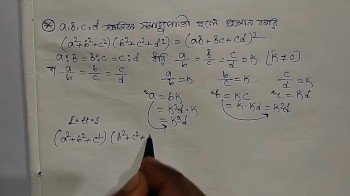 * a,b,c,d ক্রমিক সমানুপাতী হলে প্রমান করো
(a²+b²+c²) (b²+c²+d²) = (ab+bc+cd)²
a:b = b:c = c:d ধরি a/b = b/c = c/d = K [K≠0]
বা a/b = b/c = c/d
a/b = K b/c = K c/d = K
a = bK b = KC c = Kd
= K²d.K = K.Kd = K²d
= K³d
L.H.S
(a²+b²+c²) (b²+c²+